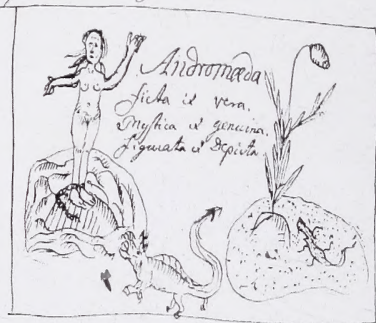 Andromæda
ficta et vera.
Mystica et genuina.
Figurata et Depicta.